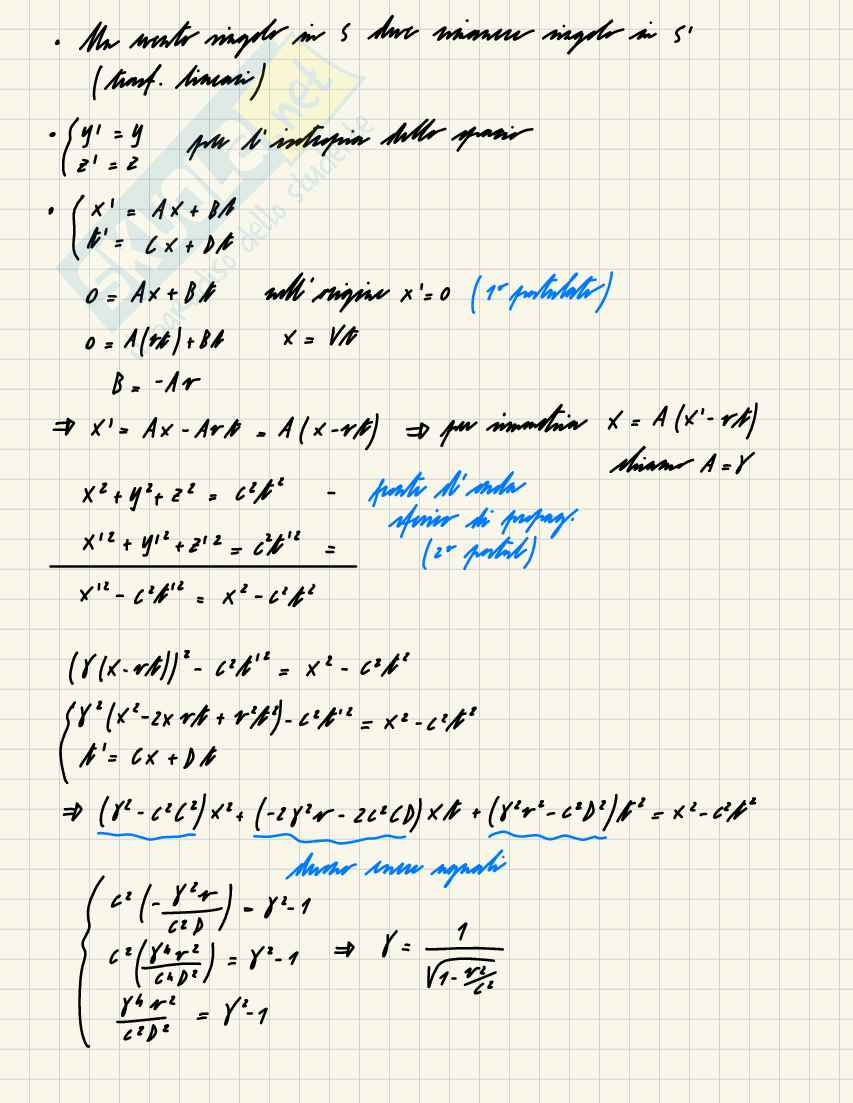 • Un evento singolo in S deve rimanere singolo in S'
(trasf. lineari)
• { y' = y
z' = z per l'isotropia dello spazio
• { x' = Ax + Bt
t' = Cx + Dt
0 = Ax + Bt nell'origine x' = 0 (1° postulato)
0 = A(vt) + Bt x = Vt
B = -Av
⇒ x' = Ax - Avt = A(x - vt) ⇒ per simmetria x = A(x' - vt)
chiamo A = γ
x² + y² + z² = c²t² - fronte d'onda
sferico di propag.
x'² + y'² + z'² = c²t'² = (2° postul)
x'² - c²t'² = x² - c²t²
(γ(x - vt))² - c²t'² = x² - c²t²
{ γ²(x² - 2xvt + v²t²) - c²t'² = x² - c²t²
t' = Cx + Dt
⇒ (γ² - c²C²)x² + (-2γ²v - 2c²CD)xt + (γ²v² - c²D²)t² = x² - c²t²
devono essere uguali
{ c²(-γ²v/c²D) = γ² - 1
c²(γ⁴v²/c⁴D²) = γ² - 1 ⇒ γ = 1/√(1 - v²/c²)
γ⁴v²/c²D² = γ² - 1
SKUOLA.net
il paradiso dello studente